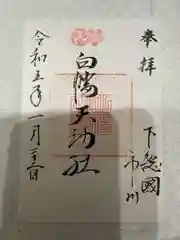 奉拝
下總國
市川
白幡天神社
令和五年一月三日